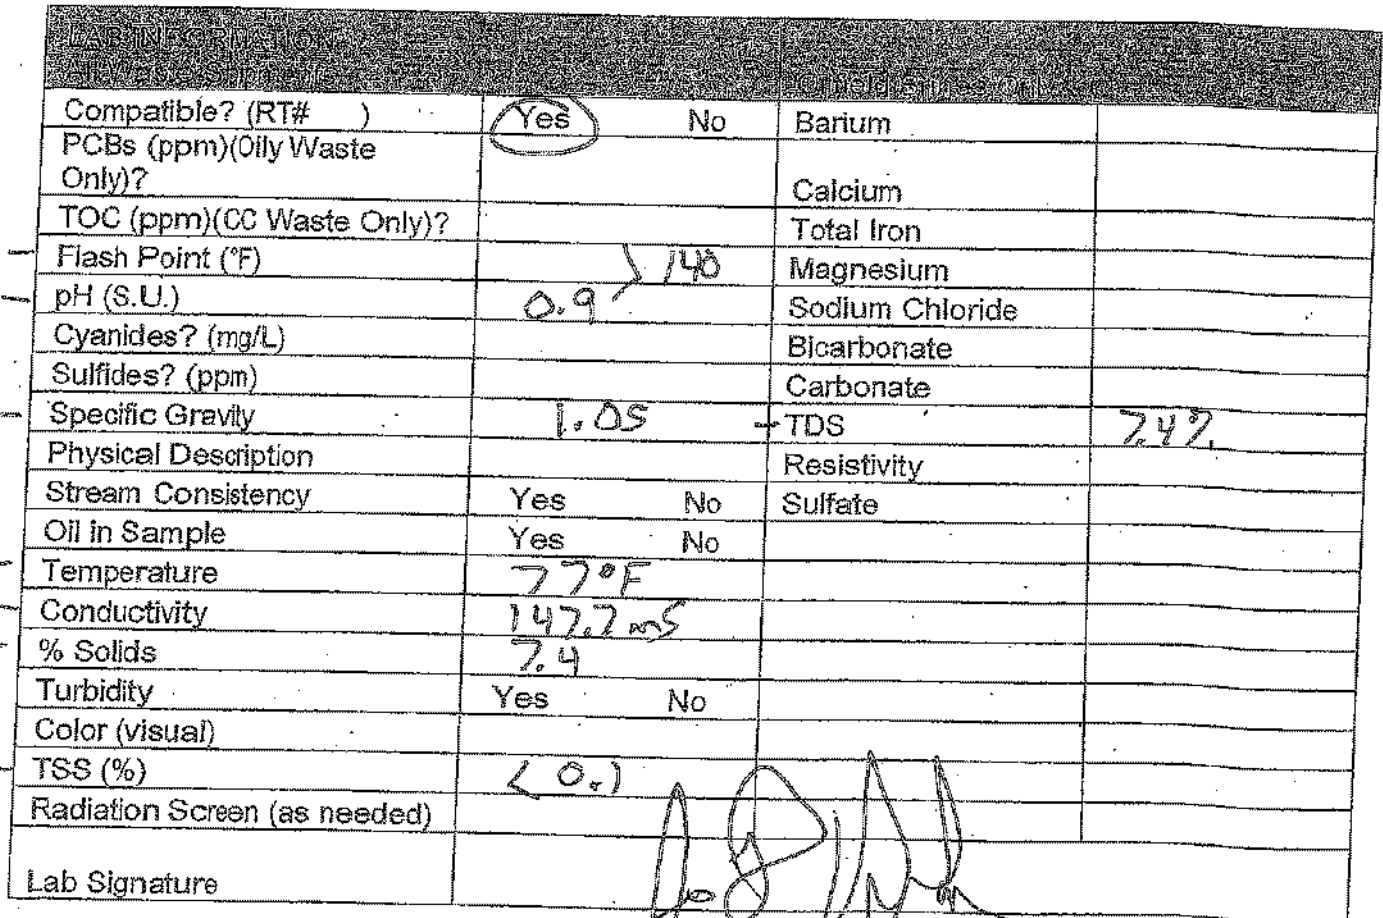 LAB INFORMATION
All Waste Shipments
Compatible? (RT#        ) Yes No Barium
PCBs (ppm)(Oily Waste
Only)? Calcium
TOC (ppm)(CC Waste Only)? Total Iron
Flash Point (°F) > 140 Magnesium
pH (S.U.) 0.9 Sodium Chloride
Cyanides? (mg/L) Bicarbonate
Sulfides? (ppm) Carbonate
Specific Gravity 1.05 TDS 7.4%
Physical Description Resistivity
Stream Consistency Yes No Sulfate
Oil in Sample Yes No
Temperature 77°F
Conductivity 147.7 mS
% Solids 7.4
Turbidity Yes No
Color (visual)
TSS (%) < 0.1
Radiation Screen (as needed)
Lab Signature